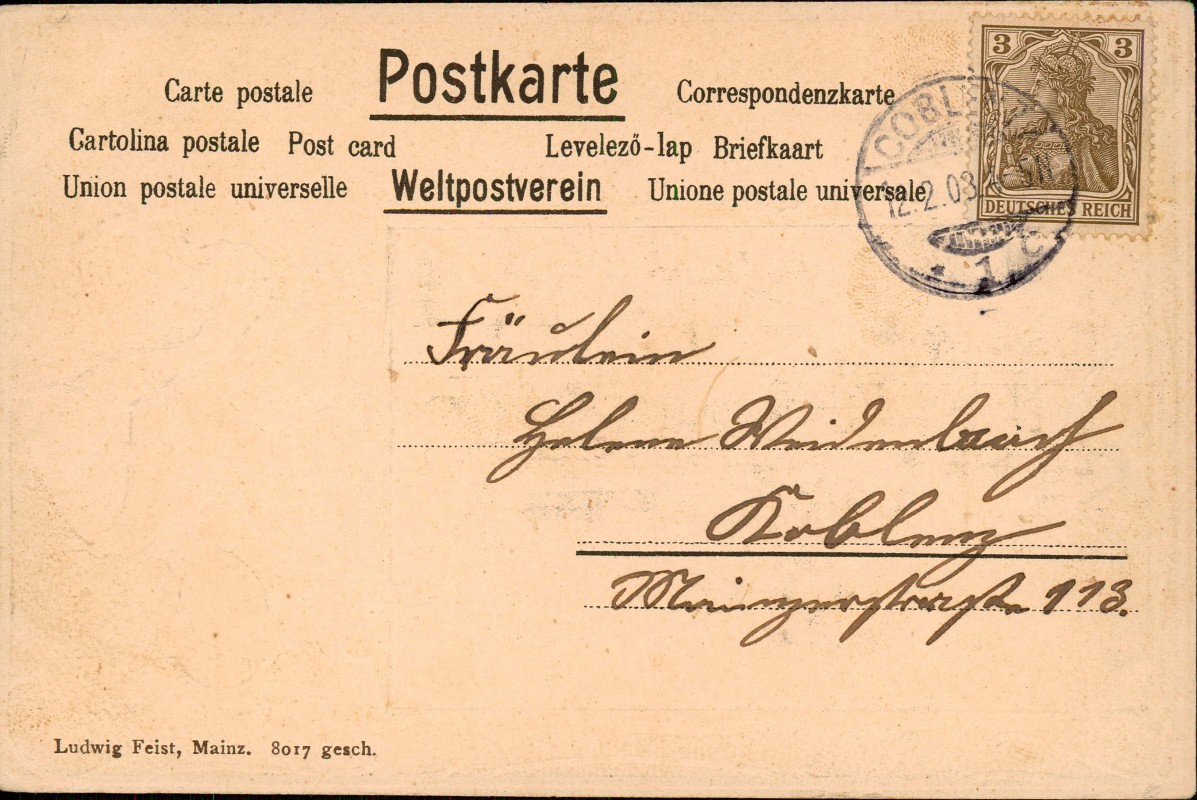 Postkarte
Carte postale
Correspondenzkarte
Cartolina postale Post card Levelező-lap Briefkaart
Union postale universelle Weltpostverein Unione postale universale
3 3
DEUTSCHES REICH
COBLENZ
12.2.03
* 1 c
Fräulein
Helene Weidenbach
Koblenz
Mainzerstraße 113.
Ludwig Feist, Mainz. 8017 gesch.